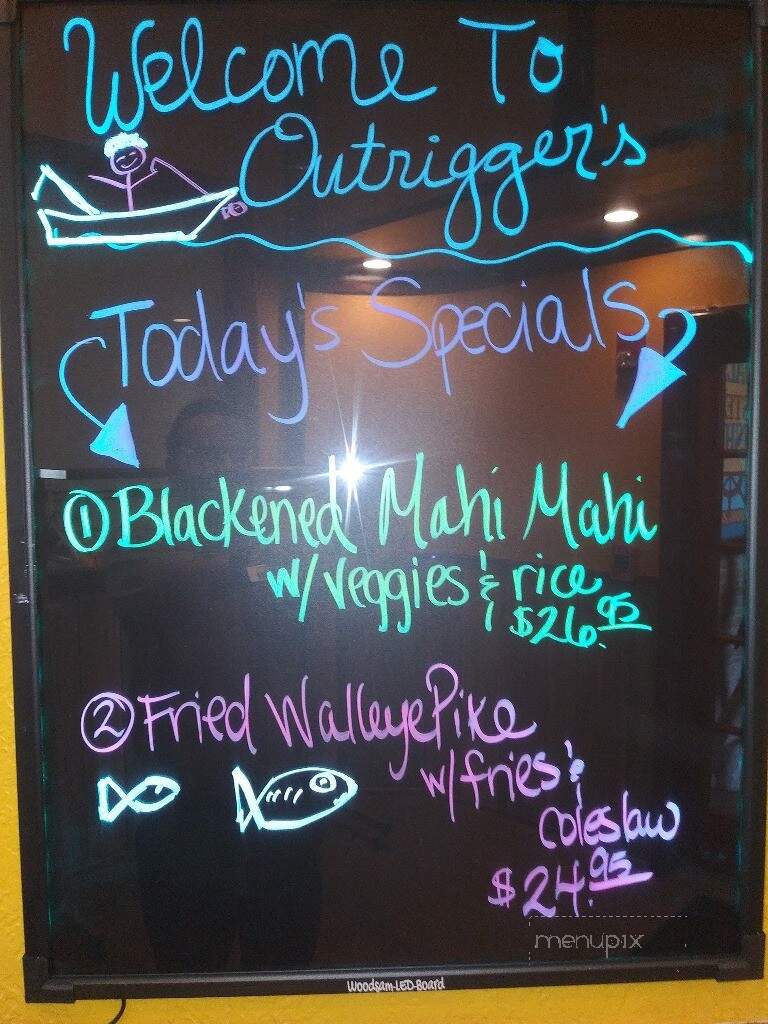 Welcome To
Outrigger's
Today's Specials
① Blackened Mahi Mahi
w/ veggies & rice
$26.95
② Fried Walleye Pike
w/ fries &
coleslaw
$24.95
menupix
Woodsam-LED-Board